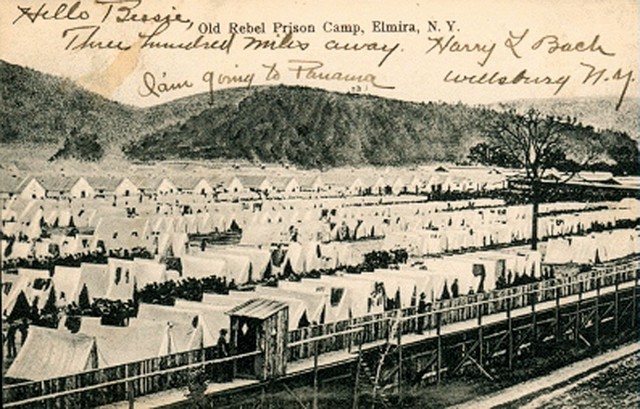 Hello Bessie,
Old Rebel Prison Camp, Elmira, N. Y.
Three hundred miles away. Harry L Bach
I am going to Panama Willsburg N.Y.